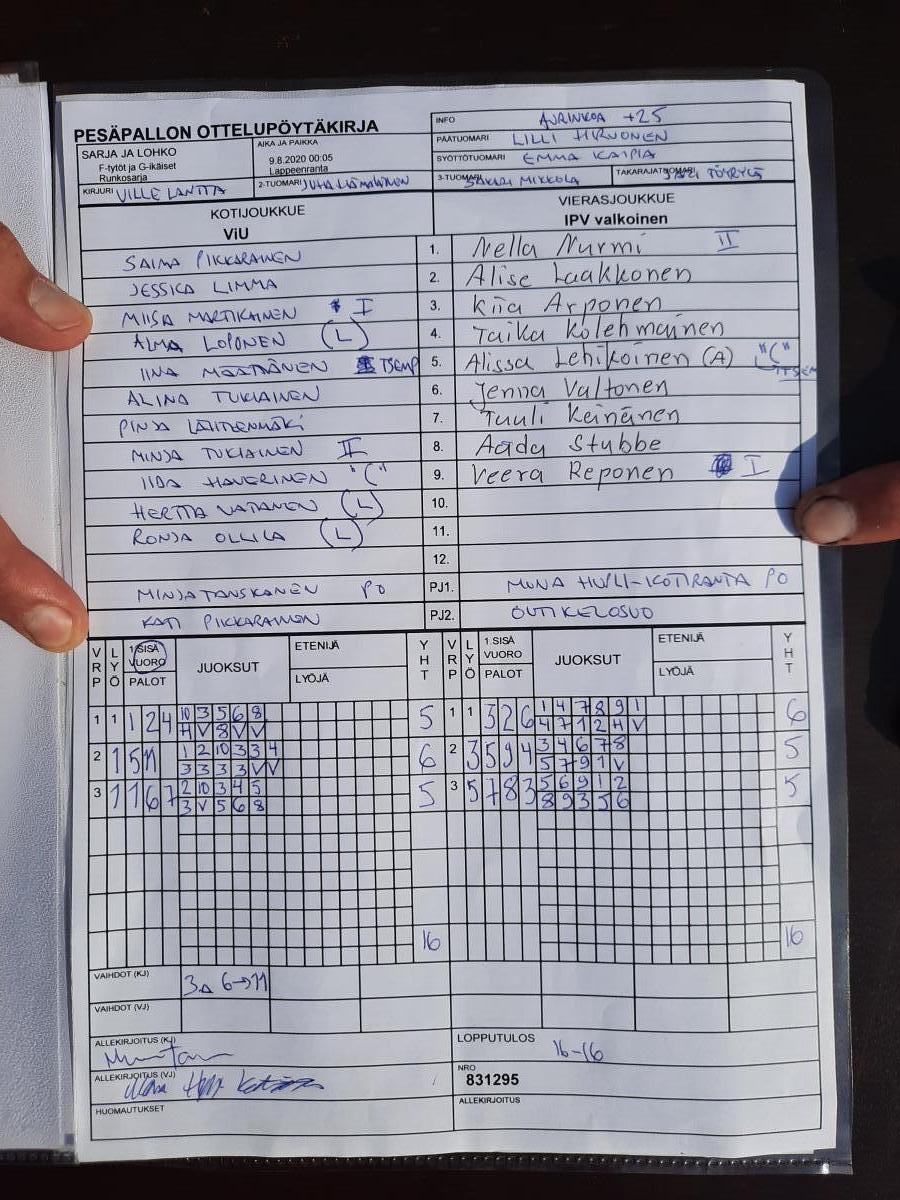 PESÄPALLON OTTELUPÖYTÄKIRJA
INFO AURINKOA +25
PÄÄTUOMARI LILLI HIRVONEN
SYÖTTÖTUOMARI EMMA KAIPIA
SARJA JA LOHKO
F-tytöt ja G-ikäiset
Runkosarja
AIKA JA PAIKKA
9.8.2020 00:05
Lappeenranta
KIRJURI VILLE LANTTA
2-TUOMARI JUHA
3-TUOMARI SAKARI MIKKOLA
TAKARAJATUOMARI
KOTIJOUKKUE
ViU
VIERASJOUKKUE
IPV valkoinen
SAIMA PIKKARAINEN 1. Nella Nurmi II
JESSICA LIMMA 2. Alise Laakkonen
MIISA MARTIKAINEN I 3. Kiia Arponen
ALMA LOPONEN (L) 4. Taika Kolehmainen
IINA MÄÄTTÄNEN TSEMP 5. Alissa Lehikoinen (A) "C" TSEM
ALINA TUKIAINEN 6. Jenna Valtonen
PINJA LAITIENMÄKI 7. Tuuli Keinänen
MINJA TUKIAINEN II 8. Aada Stubbe
IIDA HAVERINEN "C" 9. Veera Reponen I
HERTTA VATANEN (L) 10.
RONJA OLLILA (L) 11.
12.
MINJA TANSKANEN PO PJ1. MONA HUPLI-KOTIRANTA PO
KATI PIKKARAINEN PJ2. OUTI KELOSUO
VRP LYÖ 1.SISÄ VUORO PALOT JUOKSUT ETENIJÄ LYÖJÄ YHT VRP LYÖ 1.SISÄ VUORO PALOT JUOKSUT ETENIJÄ LYÖJÄ YHT
1 1 1 2 4 10 3 5 6 8 5 1 1 3 2 6 1 4 7 8 9 1 6
4 V 8 V V 4 7 1 2 4 V
2 1 5 11 1 2 10 3 3 4 6 2 3 5 9 4 3 4 6 7 8 5
3 3 3 3 V V 5 7 9 1 V
3 1 1 6 7 2 10 3 4 5 5 3 5 7 8 3 5 6 9 1 2 5
3 V 5 6 8 8 9 3 5 6
16 16
VAIHDOT (KJ) 3A 6→11
VAIHDOT (VJ)
ALLEKIRJOITUS (KJ)
LOPPUTULOS 16-16
ALLEKIRJOITUS (VJ)
NRO
831295
HUOMAUTUKSET
ALLEKIRJOITUS